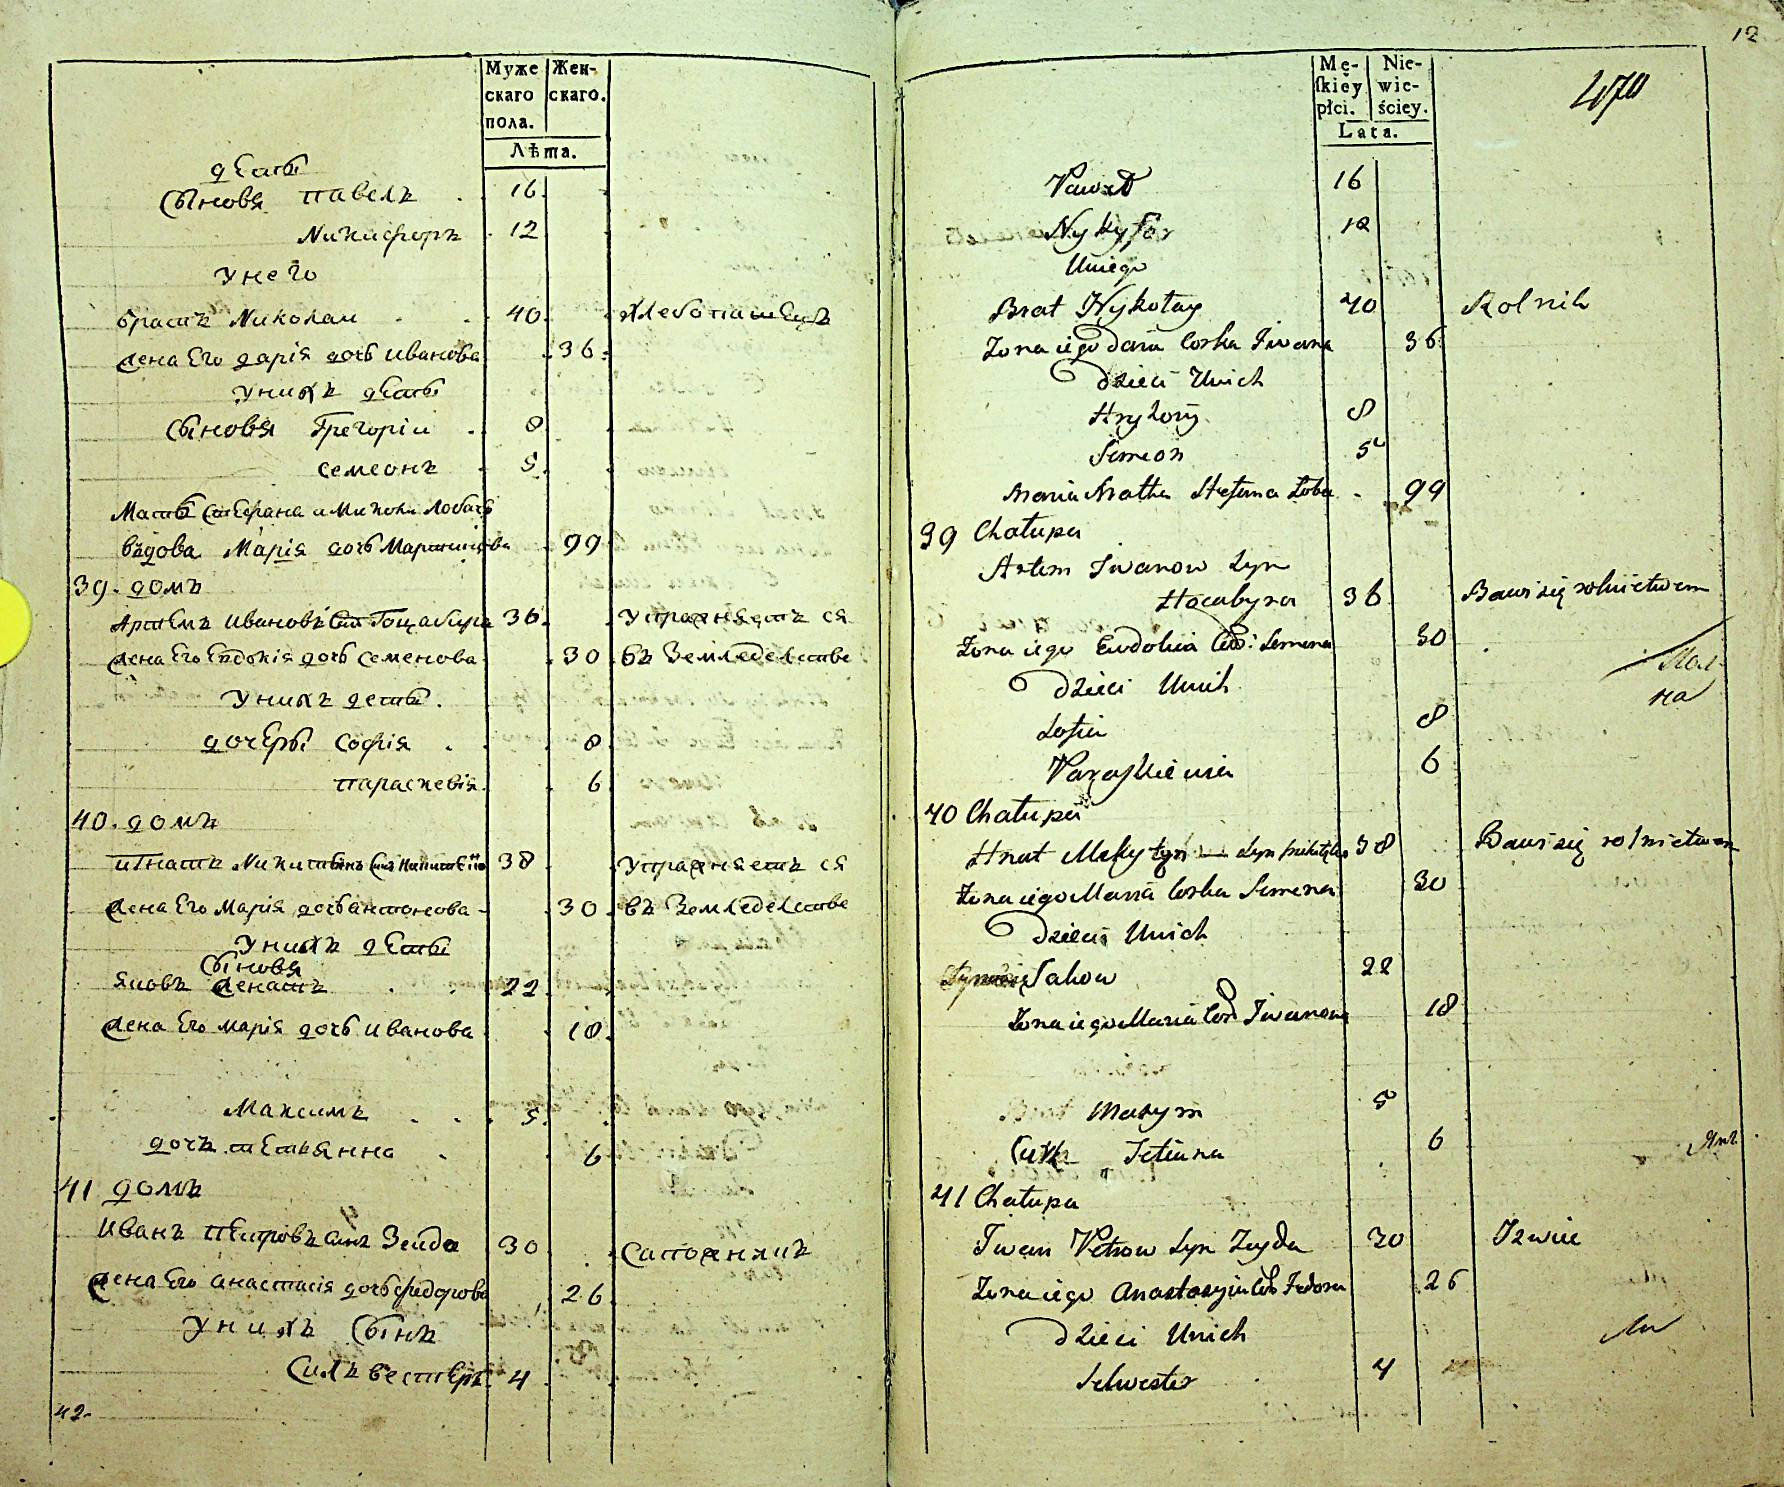 Муже
скаго
пола.
Жен-
скаго.
Лѣта.
дѣти
Сыновя павелъ 16.
Никифоръ 12
У него
братъ Николаи 40. хлебопашецъ
жена Его дарія дочь Иванова 36.
У нихъ дѣти
Сыновя Григоріи 8
семеонъ 5.
Мать Стефана и Микоы Лобачь
вдова Марія дочь Мартинова 99
39. домъ
Артемъ Ивановъ Сынъ 36. упражняетъ ся
жена Его Евдокія дочь Семенова 30 въ земледелстве
У нихъ дети.
дочеры Софія 8
параскевія 6
40. домъ
игнатъ Никитынъ 38 упражняетъ ся
жена Его Марія дочь антонова 30 въ земледелстве
У нихъ дѣти
Сыновя
яковъ женатъ 22
жена Его марія дочь Иванова 18.
Максимъ 5.
дочъ тетянна 6
41 домъ
Иванъ Петровъ Сынъ Зеида 30 сапожникъ
жена Его анастасія дочь федорова 26.
У нихъ Сынъ
Силвестеръ 4
42.
12
Mę-
ſkiey
płci.
Nie-
wie-
ściey.
Lata.
470
Paweł 16
Nykyfor 12
Uniego
Brat Mykołay 40 Rolnik
Zona iego Daria Corka Iwana 36
Dzieci Unich
Hryhory 8
Simeon 5
Maria Matka Stefana 99
39 Chałupa
Artem Iwanow Syn
36 Bawi się rolnictwem
Zona iego Eudokia Cor: Semena 30
Dzieci Unich
Sofia 8
Paraskiewia 6
40 Chałupa
Hnat Mykytyn Syn 38 Bawi się rolnictwem
Zona iego Maria Corka Semena 30
Dzieci Unich
Jakow 22
Zona iego Maria Cor Iwanowa 18
Maxym 5
Tetiana 6
41 Chałupa
Iwan Petrow Syn Zayda 30
Zona iego Anastazyia Cor Fedora 26
Dzieci Unich
Selwester 4